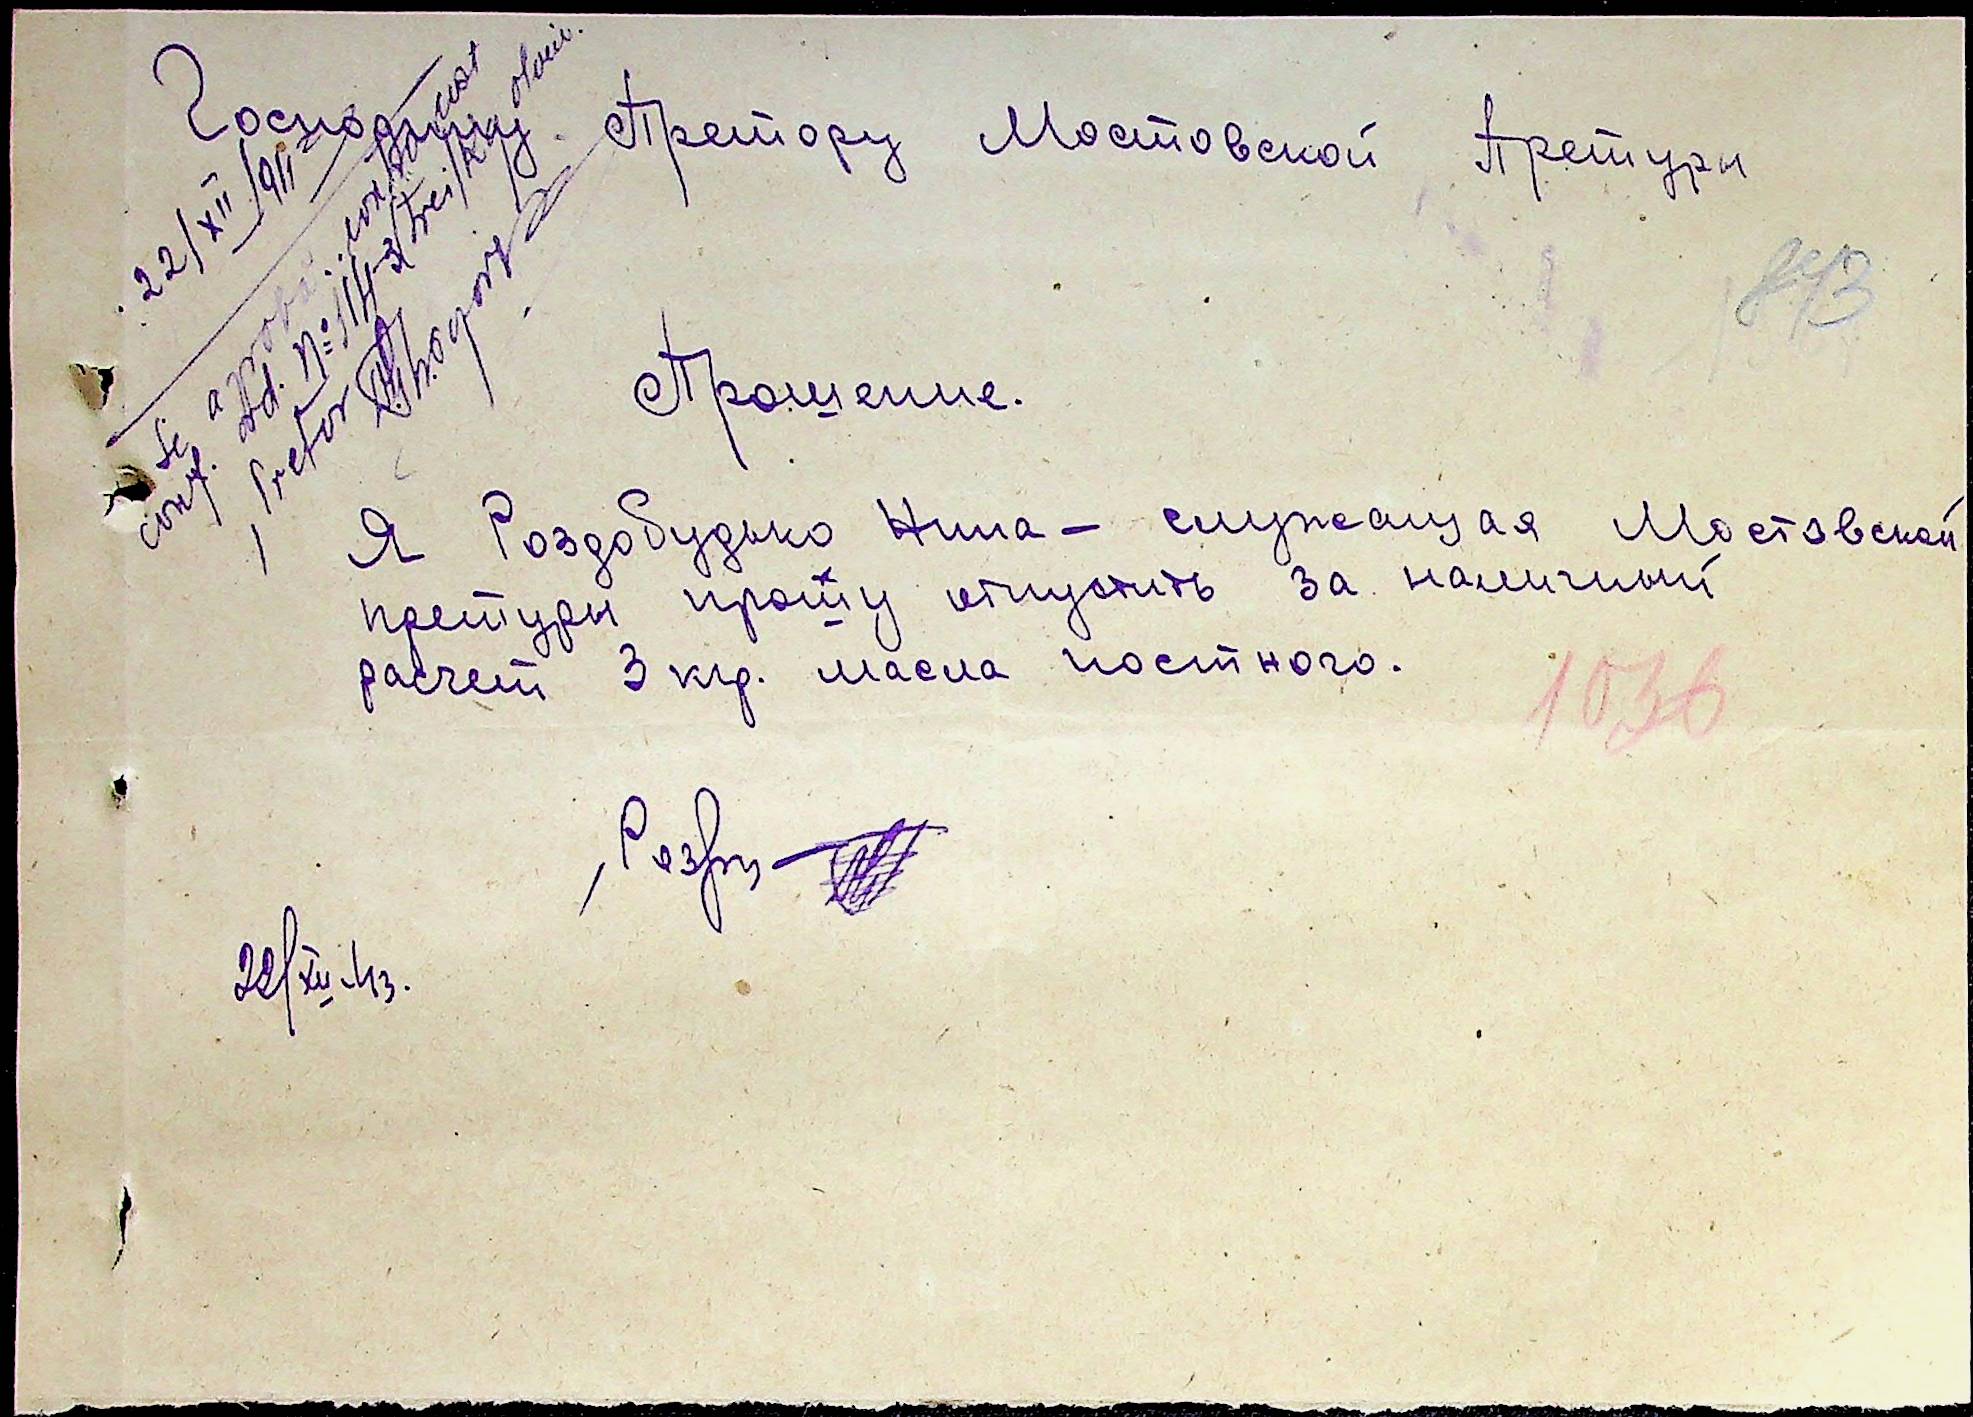 Господину Претору Мостовской Претуры
22/XII/
Se aprobă contra cost
conf. Ord. № 114 3/trei/Kgr
Pretor
843
Прошение.
Я Роздобудько Нина – служащая Мостовской
претуры прошу отпустить за наличный
расчет 3 кгр. масла постного.
1036
22/XII 43.